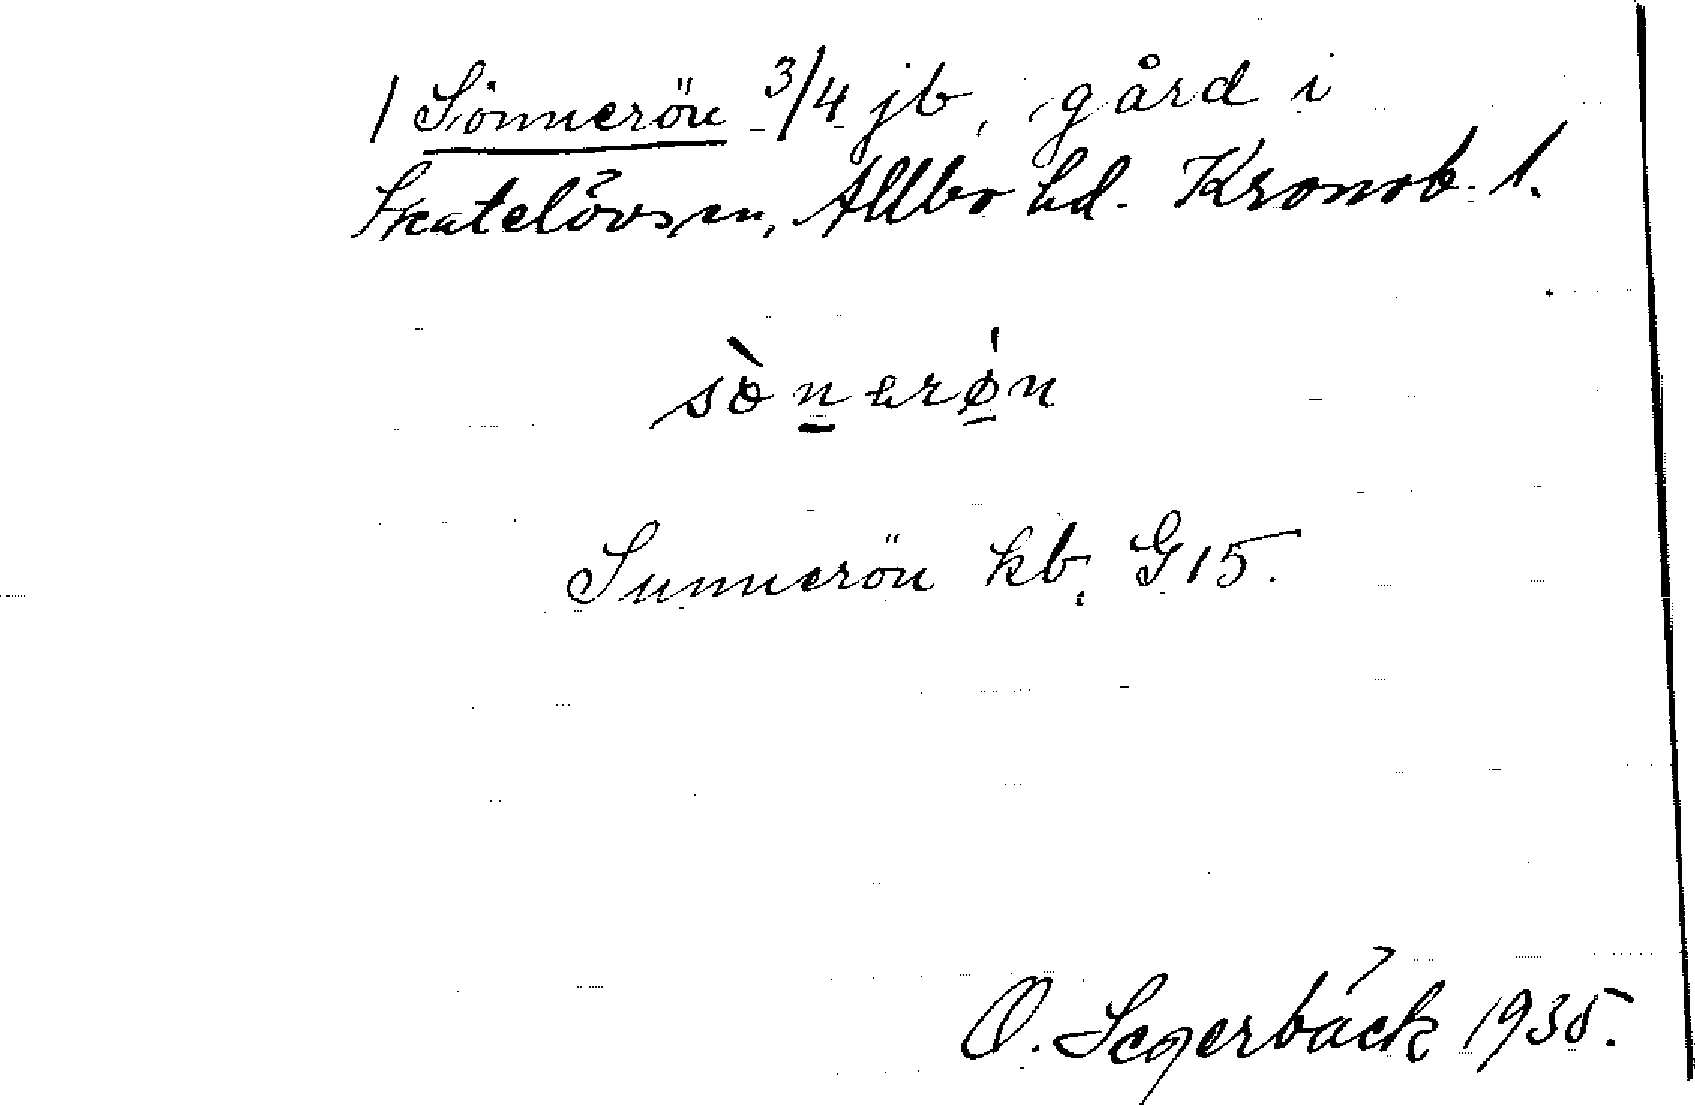 / Sönnerön 3/4 jb, gård i
Skatelövs sn, Allbo hd. Kronob. l.
sònerø̍n
Sunnerön kb. G15.
O. Segerbäck 1935.